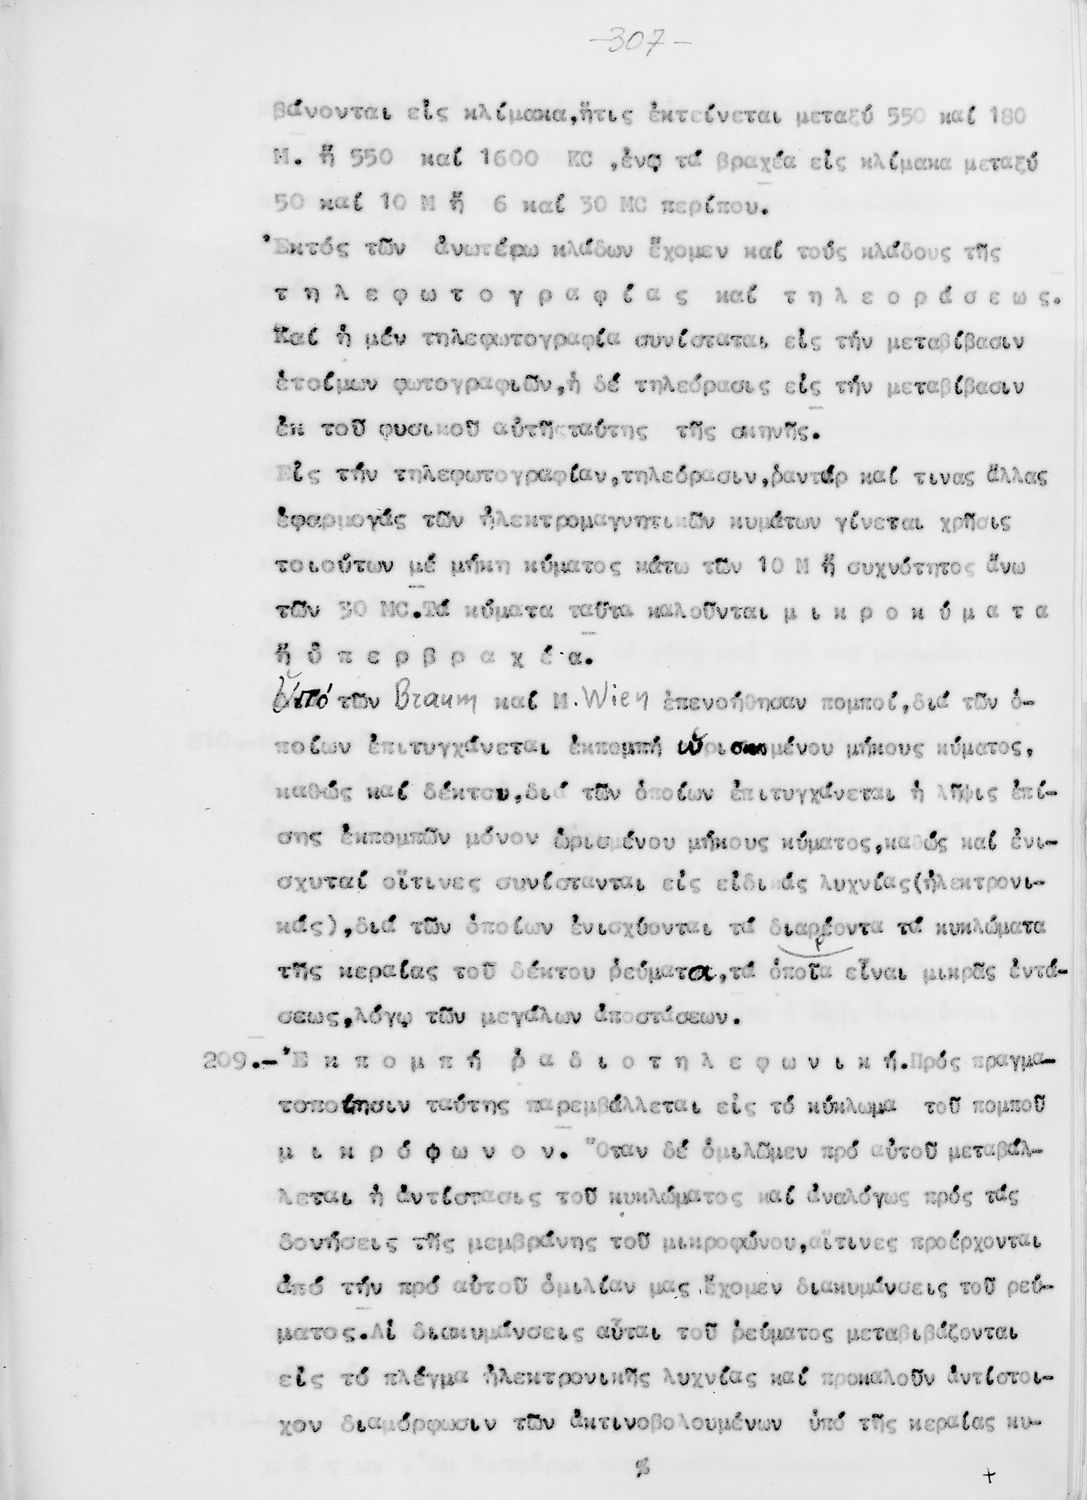 -307-
βάνονται εἰς κλίμακα,ἥτις ἐκτείνεται μεταξύ 550 καί 180
Μ. ἤ 550 καί 1600 KC ,ἐνῳ τά βραχέα εἰς κλίμακα μεταξύ
50 καί 10 Μ ἤ 6 καί 30 MC περίπου.
Ἐκτός τῶν ἀνωτέρω κλάδων ἔχομεν καί τούς κλάδους τῆς
τ η λ ε φ ω τ ο γ ρ α φ ί α ς καί τ η λ ε ο ρ ά σ ε ω ς.
Καί ἡ μέν τηλεφωτογραφία συνίσταται εἰς τήν μεταβίβασιν
ἑτοίμων φωτογραφιῶν,ἡ δέ τηλεόρασις εἰς τήν μεταβίβασιν
ἐκ τοῦ φυσικοῦ αὐτῆςταύτης τῆς σκηνῆς.
Εἰς τήν τηλεφωτογραφίαν,τηλεόρασιν,ῥαντάρ καί τινας ἄλλας
ἐφαρμογάς τῶν ἠλεκτρομαγνητικῶν κυμάτων γίνεται χρῆσις
τοιούτων μέ μήκη κύματος κάτω τῶν 10 Μ ἤ συχνότητος ἄνω
τῶν 30 MC.Τά κύματα ταῦτα καλοῦνται μ ι κ ρ ο κ ύ μ α τ α
ἤ ὑ π ε ρ β ρ α χ έ α.
Ὑπό τῶν Braun καί Μ. Wien ἐπενοήθησαν πομποί,διά τῶν ὁ-
ποίων ἐπιτυγχάνεται ἐκπομπή ὡρισμένου μήκους κύματος,
καθώς καί δέκτου,διά τῶν ὁποίων ἐπιτυγχάνεται ἡ λῆψις ἐπί-
σης ἐκπομπῶν μόνον ὡρισμένου μήκους κύματος,καθώς καί ἐνι-
σχυταί οἵτινες συνίστανται εἰς εἰδικάς λυχνίας(ἠλεκτρονι-
κάς),διά τῶν ὁποίων ἐνισχύονται τά διαρρέοντα τά κυκλώματα
τῆς κεραίας τοῦ δέκτου ῥεύματα,τά ὁποῖα εἶναι μικρᾶς ἐντά-
σεως,λόγῳ τῶν μεγάλων ἀποστάσεων.
209.-Ἐ κ π ο μ π ή ῥ α δ ι ο τ η λ ε φ ω ν ι κ ή.Πρός πραγμα-
τοποίησιν ταύτης παρεμβάλλεται εἰς τό κύκλωμα τοῦ πομποῦ
μ ι κ ρ ό φ ω ν ο ν. Ὅταν δέ ὁμιλῶμεν πρό αὐτοῦ μεταβάλ-
λεται ἡ ἀντίστασις τοῦ κυκλώματος καί ἀναλόγως πρός τάς
δονήσεις τῆς μεμβράνης τοῦ μικροφώνου,αἵτινες προέρχονται
ἀπό τήν πρό αὐτοῦ ὁμιλίαν μας ἔχομεν διακυμάνσεις τοῦ ρεύ-
ματος.Αἱ διακυμάνσεις αὗται τοῦ ῥεύματος μεταβιβάζονται
εἰς τό πλέγμα ἠλεκτρονικῆς λυχνίας καί προκαλοῦν ἀντίστοι-
χον διαμόρφωσιν τῶν ἀκτινοβολουμένων ὑπό τῆς κεραίας κυ-
%
+